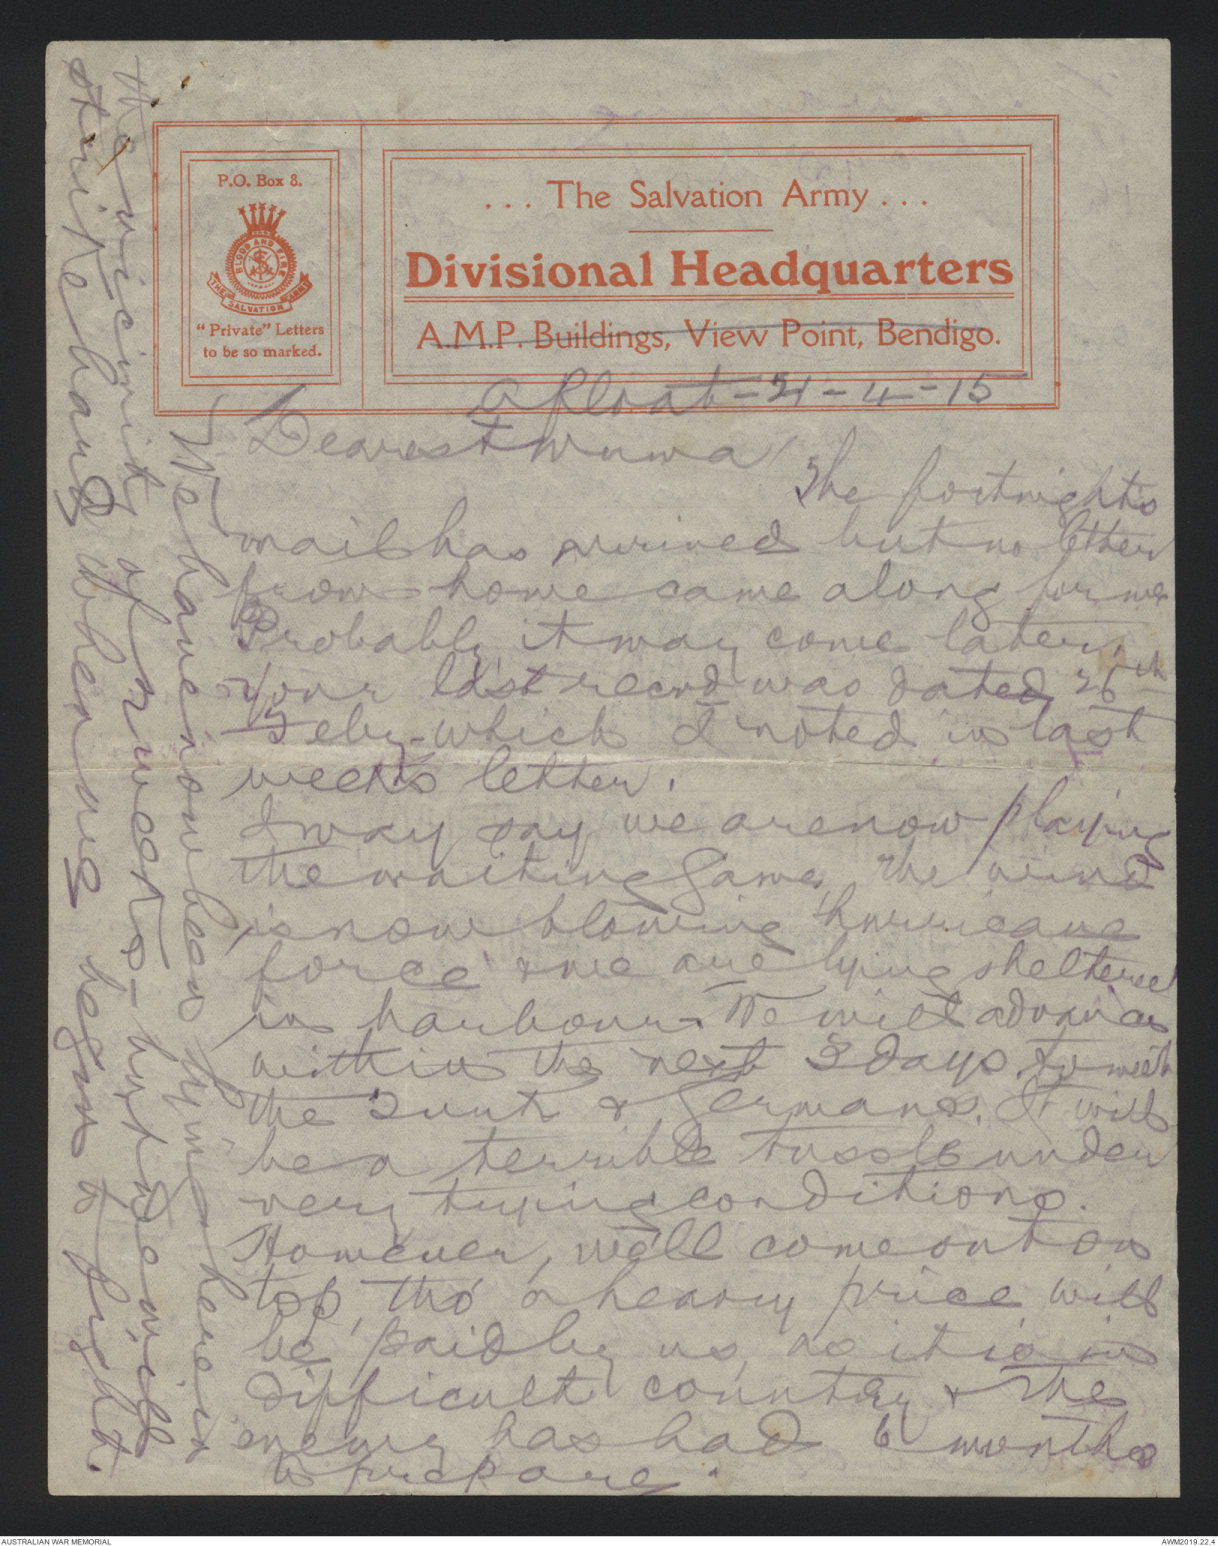 P.O. Box 8.
BLOOD AND FIRE
THE SALVATION ARMY
"Private" Letters
to be so marked.
... The Salvation Army ...
Divisional Headquarters
A.M.P. Buildings, View Point, Bendigo.
Afloat - 21 - 4 - 15
Dearest Mumma /
The fortnight's
mail has arrived but no letter
from home came along for me
Probably it may come later.
Your last record was dated 26th
Feby - which I noted in last
week's letter.
I may say we are now playing
the waiting game, the wind
is now blowing 'hurricane
force' & we are lying sheltered
in harbour - We will advance
within the next 3 days to meet
the Turk & Germans. It will
be a terrible tussle under
very trying conditions.
However, we'll come out on
top, tho' a heavy price will
be paid by us, as it is in
difficult country & the
enemy has had 6 months
to prepare.
We have now been lying here in
the vicinity of weeks - but now
strike hard when we begin to fight.
AUSTRALIAN WAR MEMORIAL
AWM2019.22.4